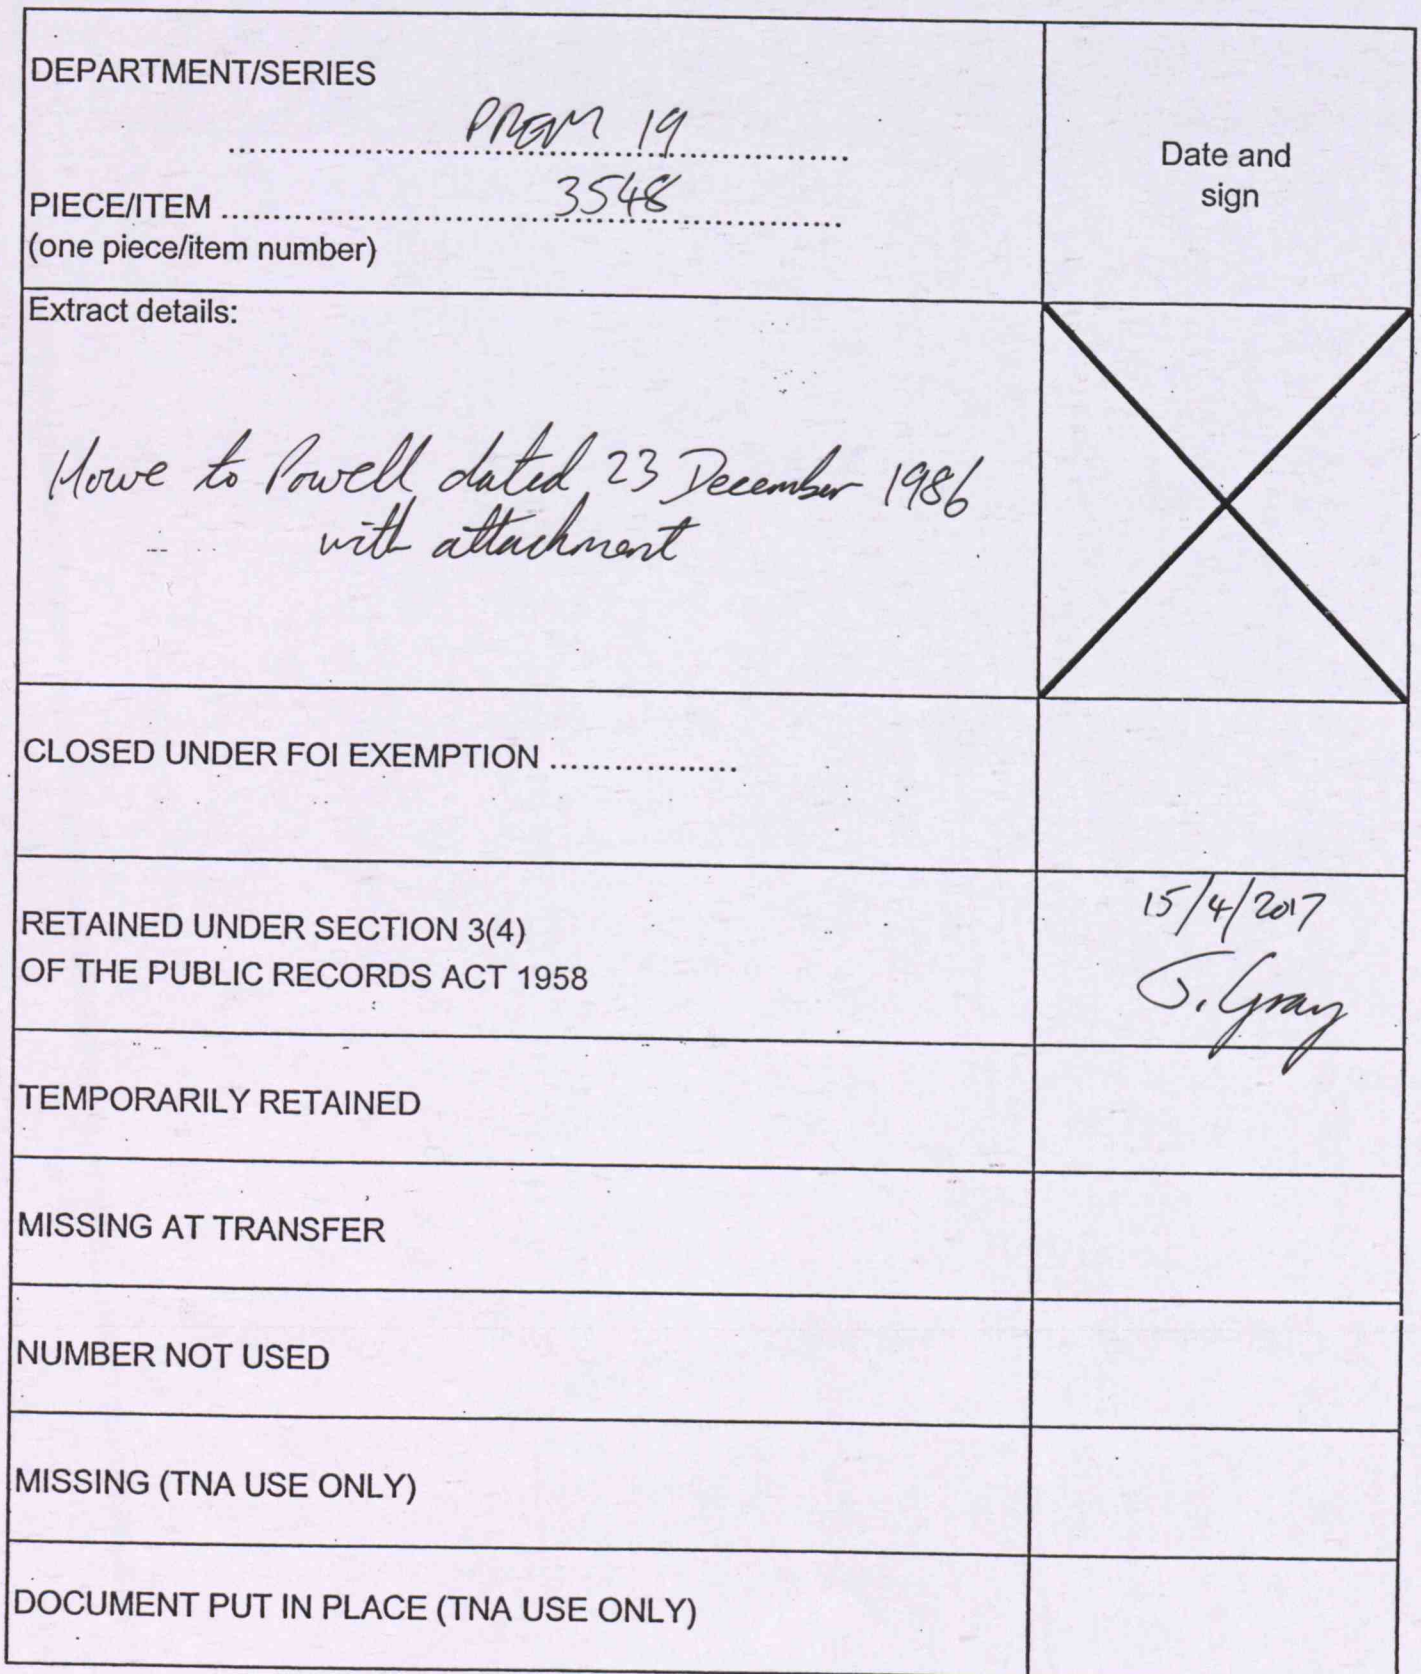 DEPARTMENT/SERIES
PREM 19
PIECE/ITEM 3548
(one piece/item number)
Date and
sign
Extract details:
Howe to Powell dated 23 December 1986
with attachment
CLOSED UNDER FOI EXEMPTION ..................
RETAINED UNDER SECTION 3(4)
OF THE PUBLIC RECORDS ACT 1958
15/4/2017
J. Gray
TEMPORARILY RETAINED
MISSING AT TRANSFER
NUMBER NOT USED
MISSING (TNA USE ONLY)
DOCUMENT PUT IN PLACE (TNA USE ONLY)